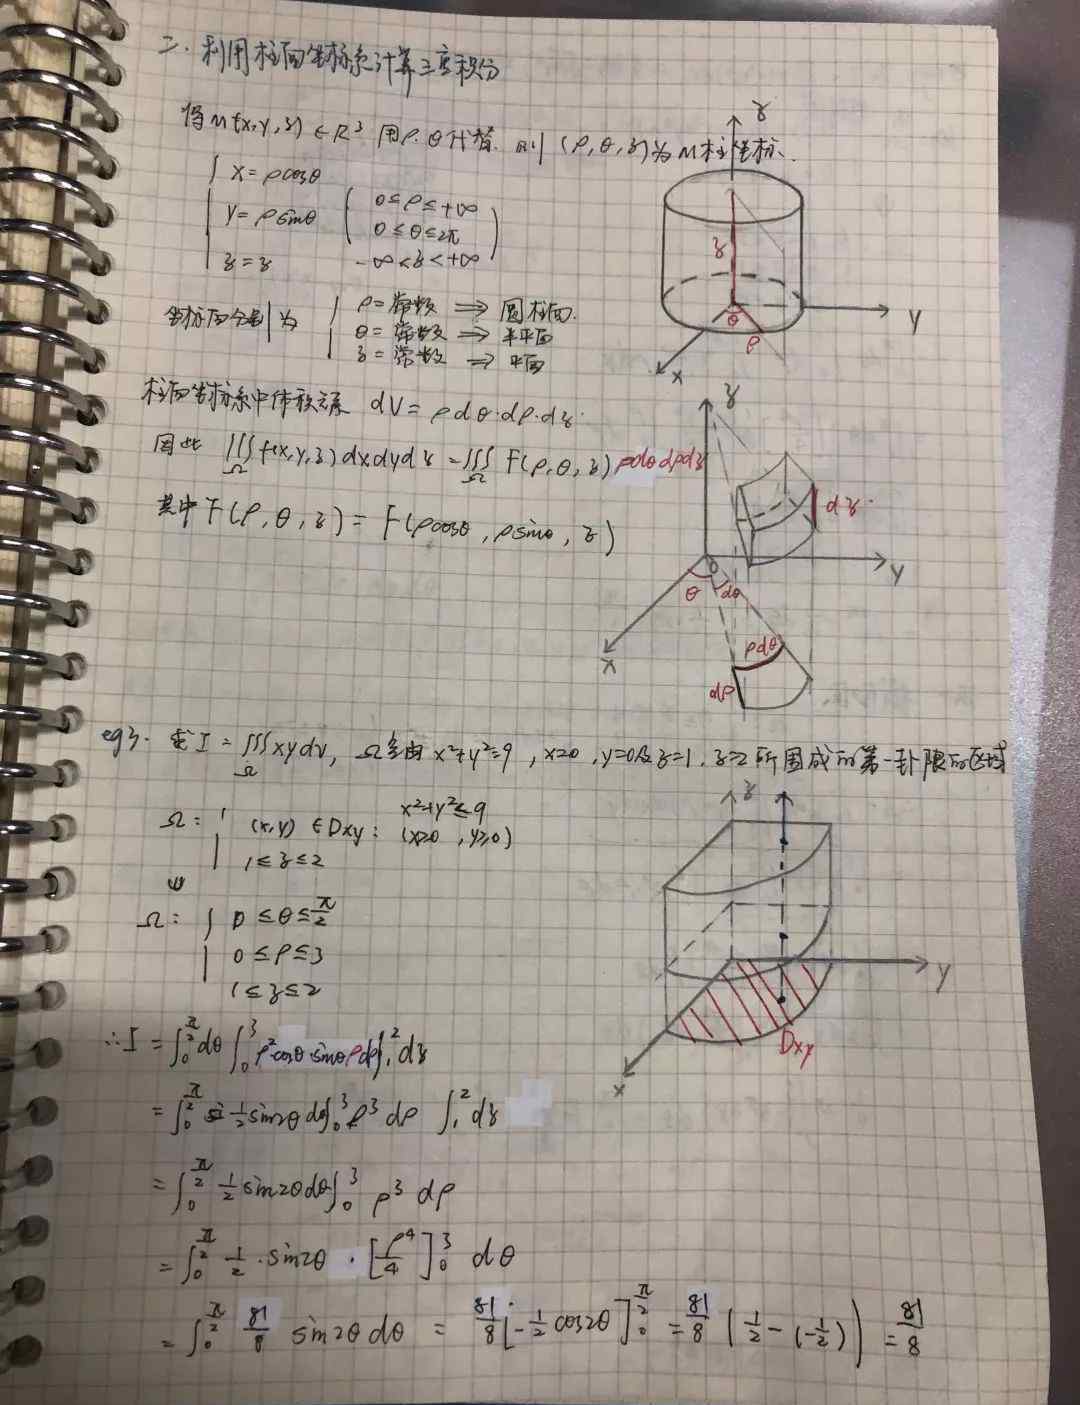 二. 利用柱面坐标系计算三重积分
将M(x,y,z) ∈ R³ 用ρ.θ代替. 则 (ρ,θ,z)为M柱坐标.
{ x = ρcosθ
y = ρsinθ
z = z
( 0≤ρ≤+∞
0≤θ≤2π
-∞<z<+∞ )
坐标面分别为
{ ρ=常数 ⇒ 圆柱面.
θ=常数 ⇒ 半平面
z=常数 ⇒ 平面
柱面坐标系中体积元素 dV = ρdθ·dρ·dz.
因此 ∭Ω f(x,y,z)dxdydz = ∭Ω F(ρ,θ,z) ρdθdρdz
其中 F(ρ,θ,z) = F(ρcosθ, ρsinθ, z)
z
z
θ
ρ
x
y
z
dz
y
0
θ
dθ
x
ρdθ
dρ
eg3. 求I = ∭Ω xydv, Ω是由x²+y²=9, x=0, y=0及z=1, z=2所围成的第一卦限的区域
Ω: { (x,y) ∈ Dxy: x²+y²≤9
(x≥0, y≥0)
1≤z≤2
⇓
Ω: { 0≤θ≤π/2
0≤ρ≤3
1≤z≤2
z
y
x
Dxy
∴I = ∫₀^(π/2) dθ ∫₀³ ρ²cosθ sinθ ρdρ ∫₁² dz
= ∫₀^(π/2) ½sin2θ dθ ∫₀³ ρ³ dρ ∫₁² dz
= ∫₀^(π/2) ½sin2θdθ ∫₀³ ρ³ dρ
= ∫₀^(π/2) ½·sin2θ · [ρ⁴/4]₀³ dθ
= ∫₀^(π/2) 81/8 sin2θ dθ = 81/8 [-½cos2θ]₀^(π/2) = 81/8 (½-(-½)) = 81/8